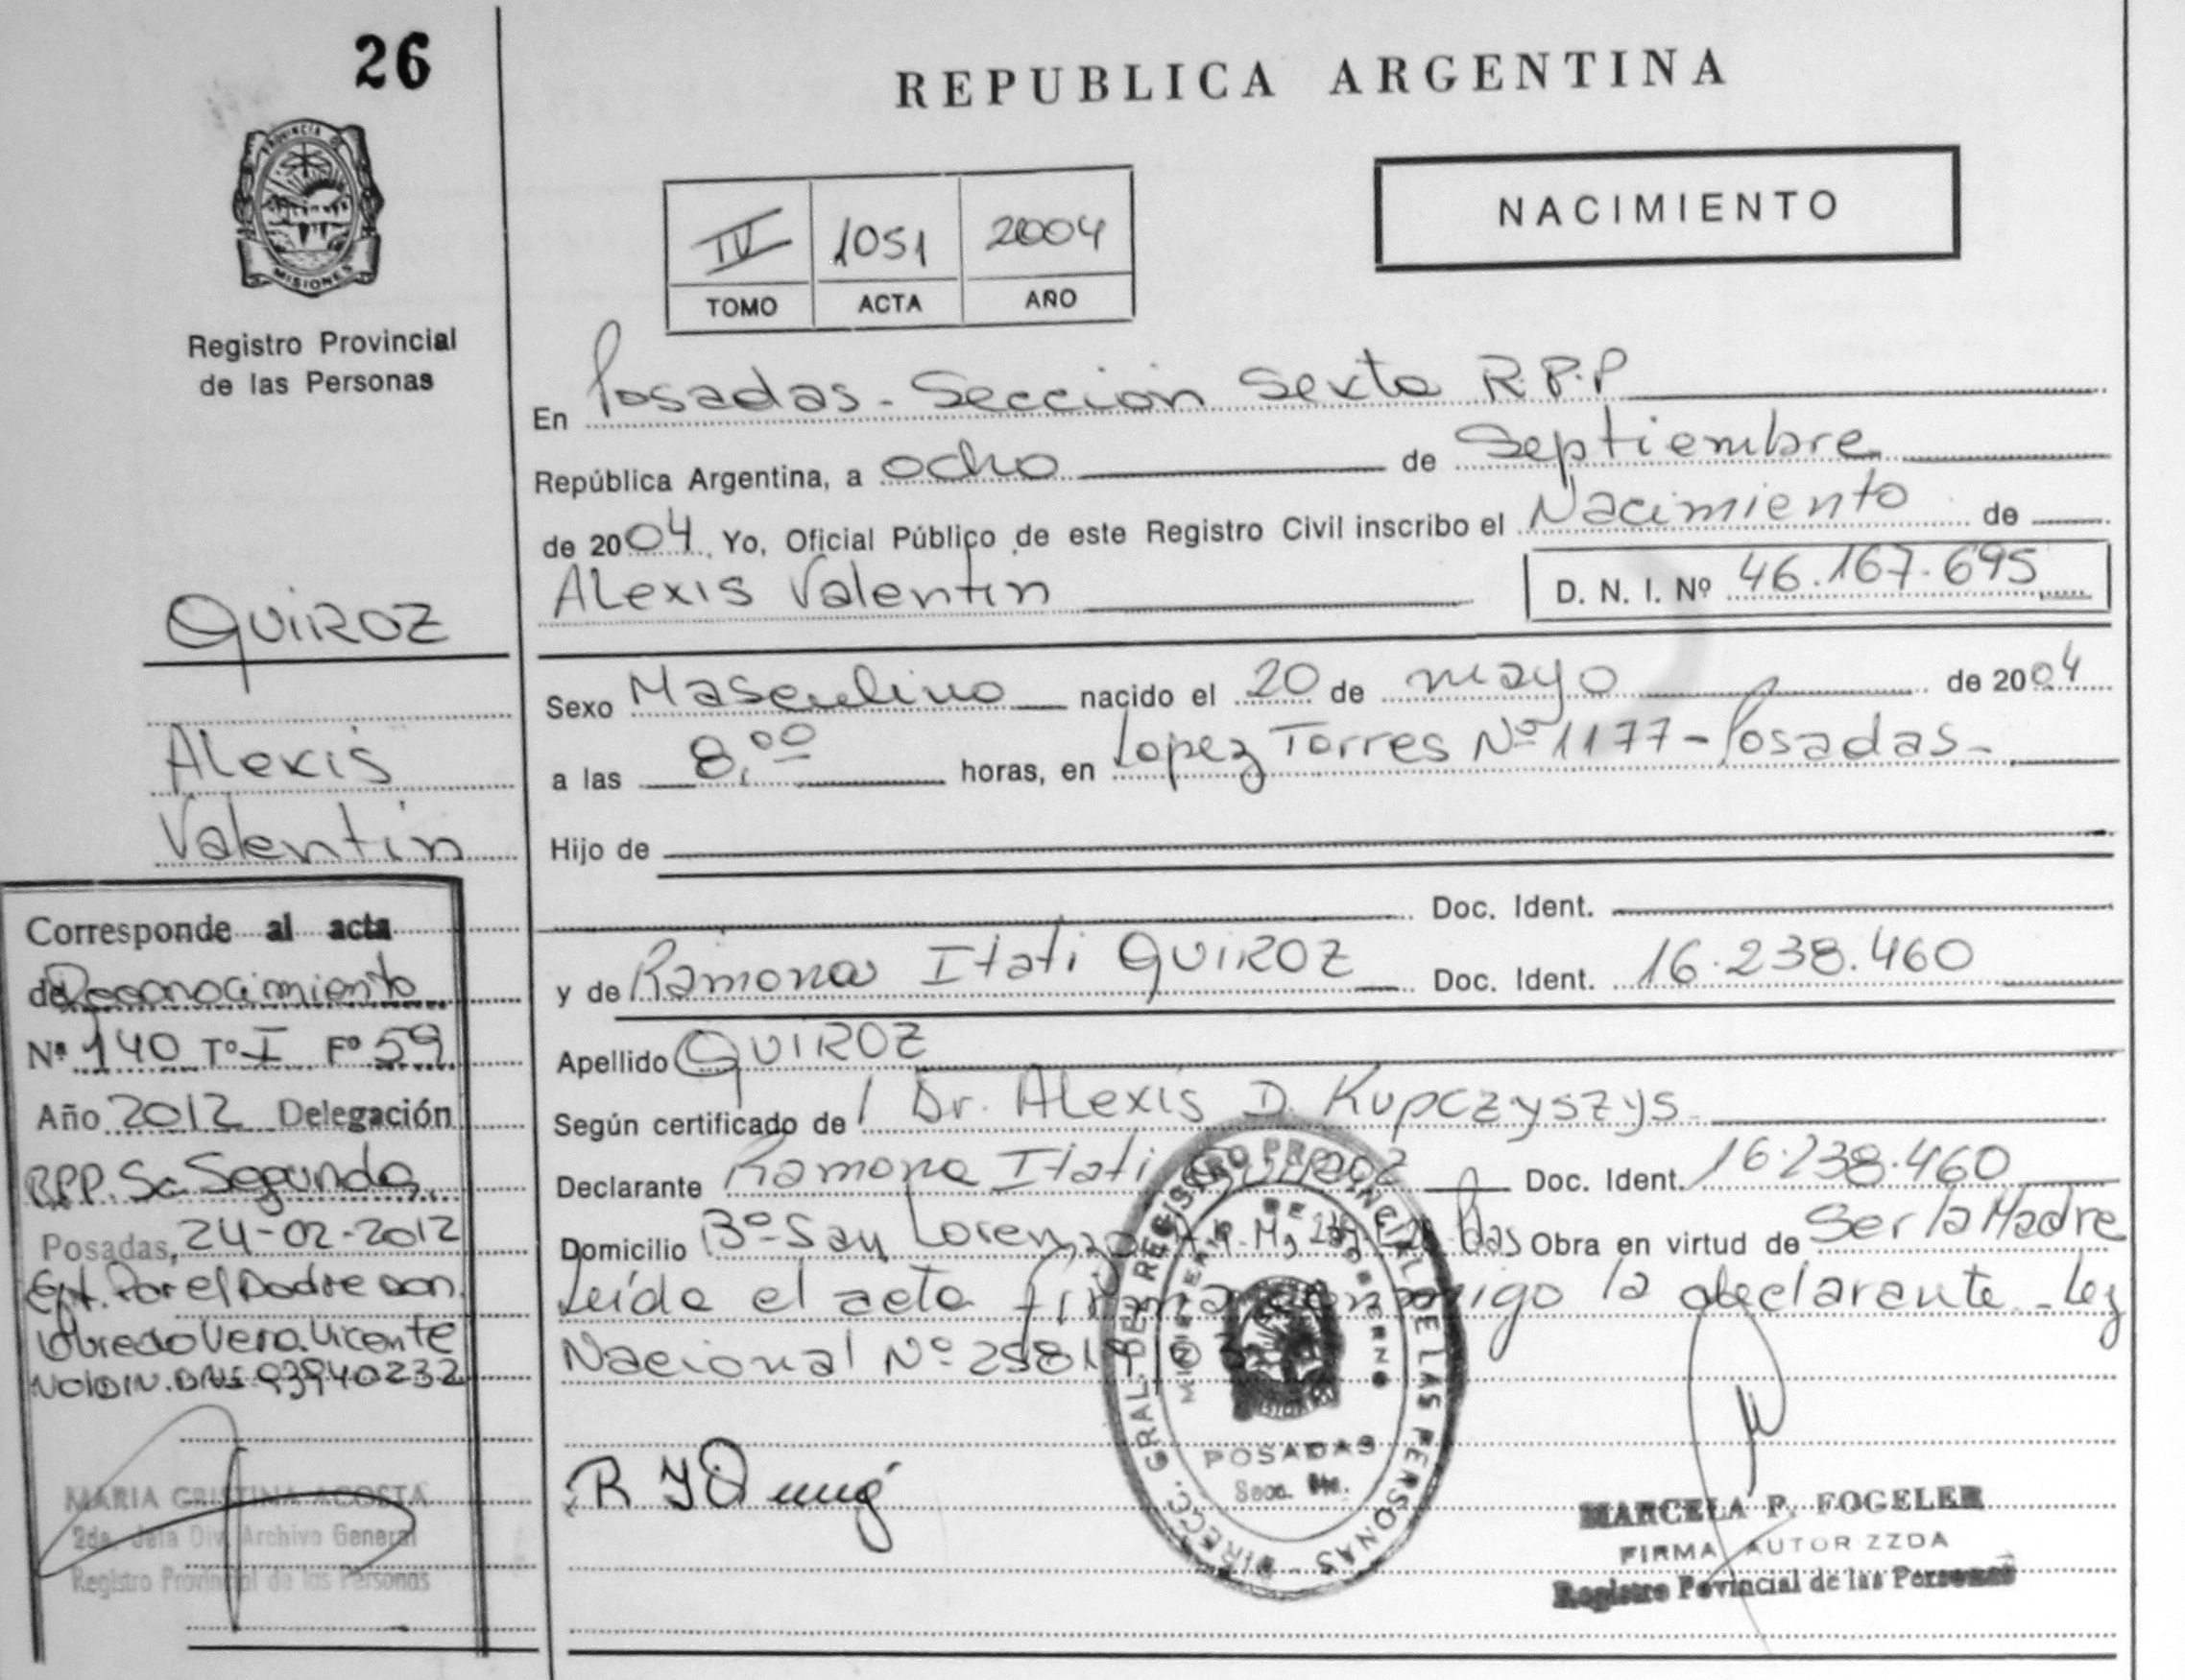 26
REPUBLICA ARGENTINA
PROVINCIA DE
MISIONES
Registro Provincial
de las Personas
NACIMIENTO
IV 1051 2004
TOMO ACTA AÑO
En Posadas - Sección Sexta R.P.P
República Argentina, a ocho de Septiembre
de 2004. Yo, Oficial Público de este Registro Civil inscribo el Nacimiento de
Alexis Valentín
D. N. I. Nº 46.167.695
QUIROZ
Alexis
Valentín
Sexo Masculino nacido el 20 de mayo de 2004
a las 8,00 horas, en Lopez Torres Nº 1177 - Posadas -
Hijo de
Doc. Ident.
y de Ramona Itatí QUIROZ Doc. Ident. 16.238.460
Apellido QUIROZ
Según certificado de Dr. Alexis D. Kupczyszys
Declarante Ramona Itatí Quiroz Doc. Ident. 16.238.460
Domicilio Bº San Lorenzo Obra en virtud de Ser la Madre
Leída el acta firma conmigo la declarante - Ley
Nacional Nº
Corresponde al acta
de Reconocimiento
Nº 140 Tº I Fº 59
Año 2012 Delegación
RPP. Sc Segunda
Posadas, 24-02-2012
Por el Padre don
Vicente
93940232
MARIA CRISTINA ACOSTA
2da. Jefa Div. Archivo General
Registro Provincial de las Personas
DIRECC. GRAL. DEL REGISTRO PROVINCIAL DE LAS PERSONAS
MINISTERIO DE GOBIERNO
POSADAS
Secc.
MARCELA P. FOGELER
FIRMA AUTORIZZDA
Registro Povincial de las Personas